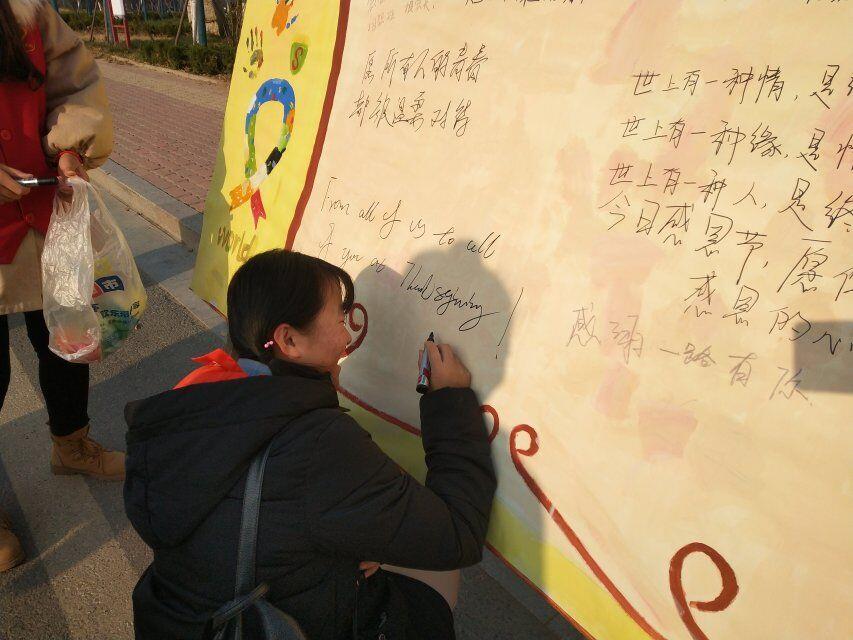 愿所有人的青春
都被温柔对待
From all of us to all
of you at Thanksgiving!
世上有一种情，是
世上有一种缘，是
世上有一种人，是终
今日感恩节，愿
感恩的
感谢一路有你
world